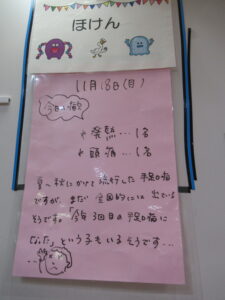 ほけん
11月18日(月)
今日の欠
発熱…1名
頭痛…1名
夏〜秋にかけて流行した手足口病
ですが、まだ全国的には出ている
そうです。「今年3回目の手足口病に
なった」という子もいるそうです…